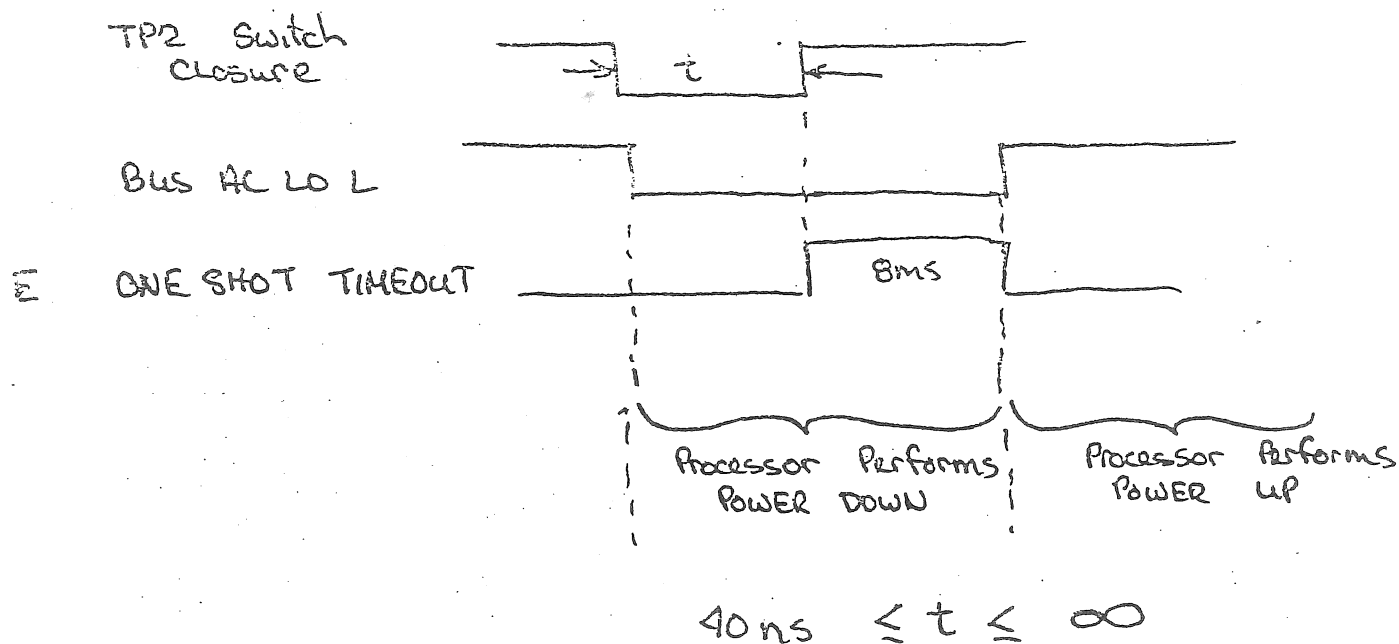 TP2 Switch
Closure
t
Bus AC LO L
E ONE SHOT TIMEOUT
8ms
Processor Performs
POWER DOWN
Processor Performs
POWER UP
40ns ≤ t ≤ ∞